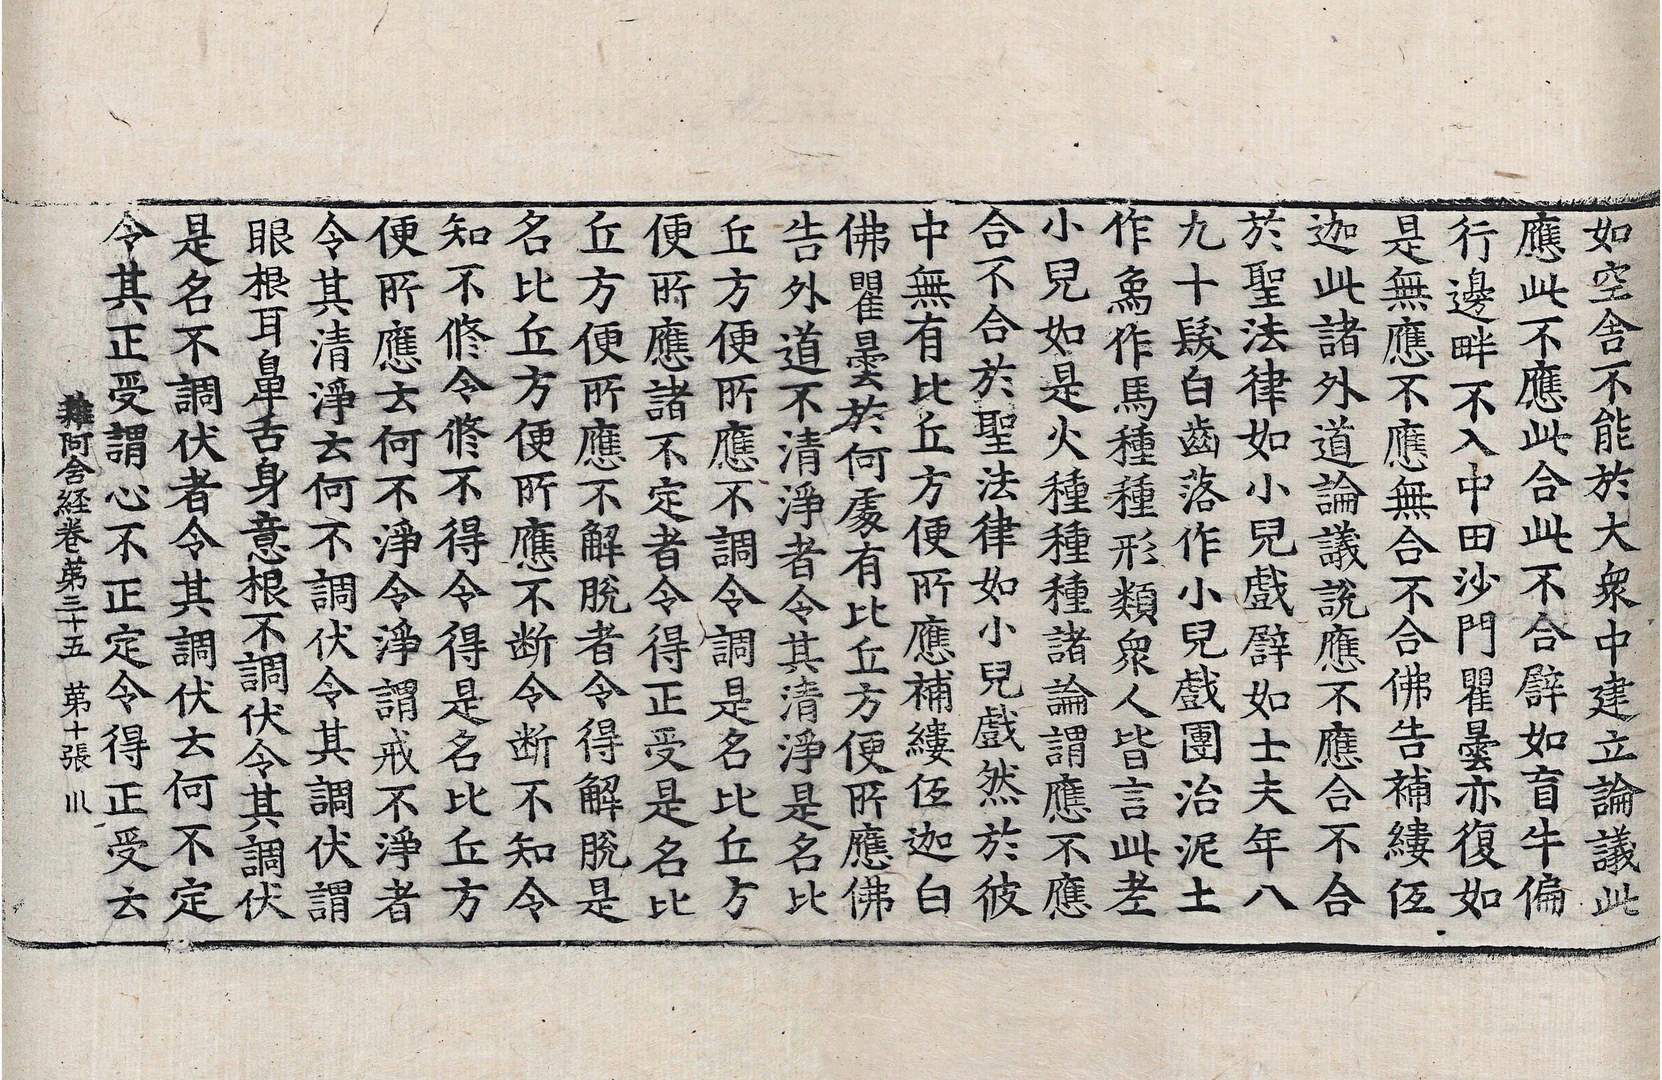 如空舍不能於大衆中建立論議此
應此不應此合此不合譬如盲牛偏
行邊畔不入中田沙門瞿曇亦復如
是無應不應無合不合佛告補縷伍
迦此諸外道論議說應不應合不合
於聖法律如小兒戲譬如士夫年八
九十髮白齒落作小兒戲團治泥土
作象作馬種種形類衆人皆言此老
小兒如是火種種種諸論謂應不應
合不合於聖法律如小兒戲然於彼
中無有比丘方便所應補縷伍迦白
佛瞿曇於何處有比丘方便所應佛
告外道不清淨者令其清淨是名比
丘方便所應不調令調是名比丘方
便所應諸不定者令得正受是名比
丘方便所應不解脫者令得解脫是
名比丘方便所應不断令断不知令
知不修令修不得令得是名比丘方
便所應云何不淨令淨謂戒不淨者
令其清淨云何不調伏令其調伏謂
眼根耳鼻舌身意根不調伏令其調伏
是名不調伏者令其調伏云何不定
令其正受謂心不正定令得正受云
雜阿含経卷第三十五 第十張